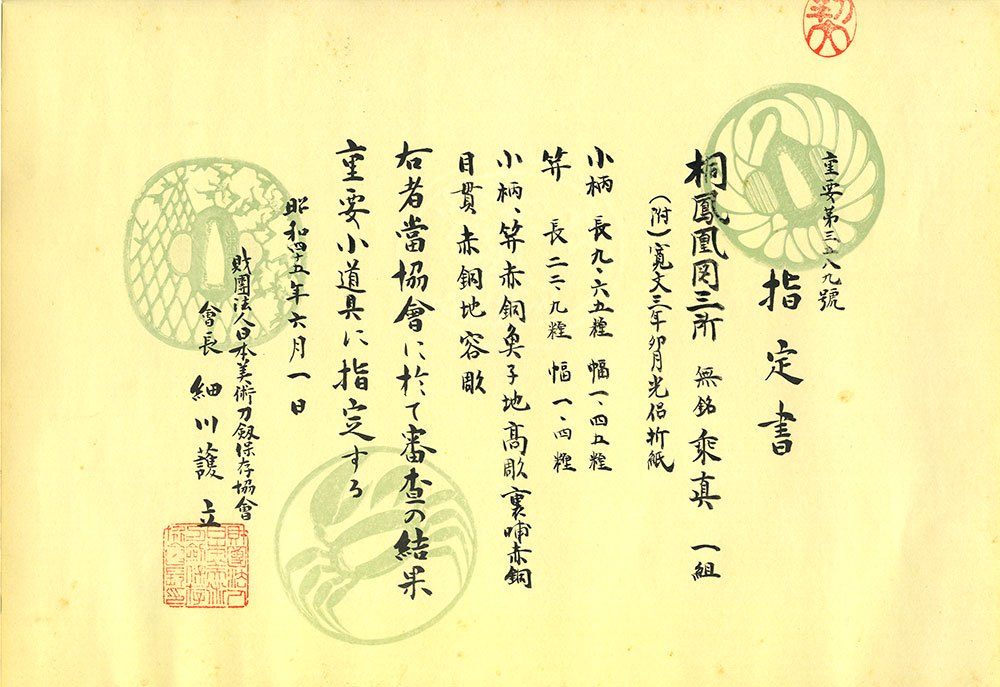 重要第三五八九號
指定書
桐鳳凰図三所 無銘 乘真 一組
(附)寛文三年卯月光侶折紙
小柄 長九・六五糎 幅一・四五糎
笄 長二二・九糎 幅一・四糎
小柄、笄赤銅魚子地高彫裏哺赤銅
目貫赤銅地容彫
右者當協會に於て審査の結果
重要小道具に指定する
昭和四十五年六月一日
財團法人日本美術刀剣保存協會
會長 細川護立